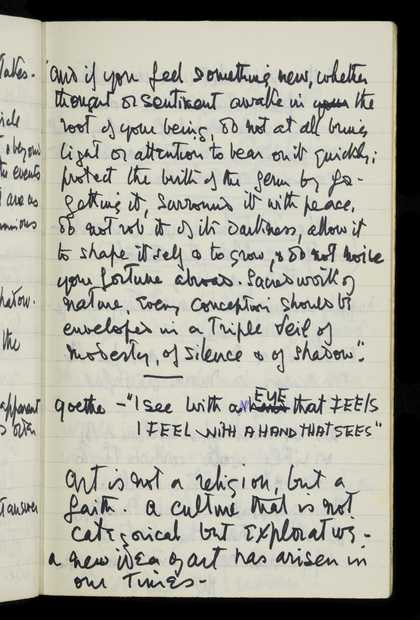 takes.
"And if you feel something new, whether
thought or sentiment awake in your the
root of your being, do not at all bring
light or attention to bear on it quickly;
protect the birth of the germ by for-
getting it, surround it with peace,
do not rob it of its darkness, allow it
to shape itself & to grow, & do not noise
your fortune abroad. Sacred work of
nature, every conception should be
enveloped in a Triple Veil of
modesty, of silence & of shadow".
events
are as
shadow.
the
goethe - "I see with an EYE that FEELS
I FEEL WITH A HAND THAT SEES"
apparent
often
Art is not a religion, but a
faith. a culture that is not
categorical but explorative -
answer
a new idea of art has arisen in
our Times -